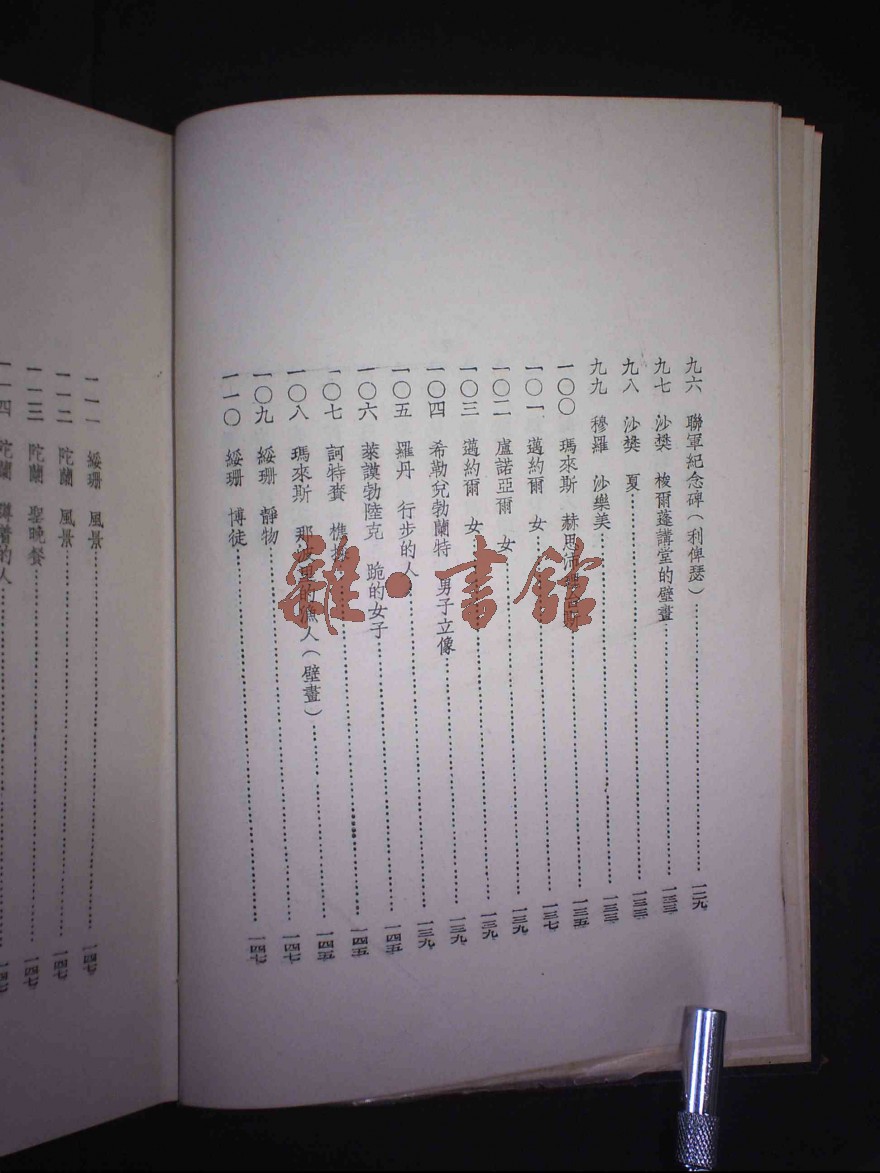 九六 聯軍紀念碑（利俾瑟）……一二九
九七 沙樊 梭爾蓬講堂的壁畫……一三三
九八 沙樊 夏……一三三
九九 穆羅 沙樂美……一三三
一〇〇 瑪來斯 赫思……一三五
一〇一 邁約爾 女……一三七
一〇二 盧諾亞爾 女……一三九
一〇三 邁約爾 女……一三九
一〇四 希勒兌勃蘭特 男子立像……一三九
一〇五 羅丹 行步的人……一三九
一〇六 萊謨勃陸克 跪的女子……一四五
一〇七 訶特賚……一四五
一〇八 瑪來斯 那波里的漁人（壁畫）……一四五
一〇九 綏珊 靜物……一四七
一一〇 綏珊 博徒……一四七
一一一 綏珊 風景……一四七
一一二 陀蘭 風景……一四七
一一三 陀蘭 聖晚餐……一四七
一一四 陀蘭 的人……一四七
雜·書館